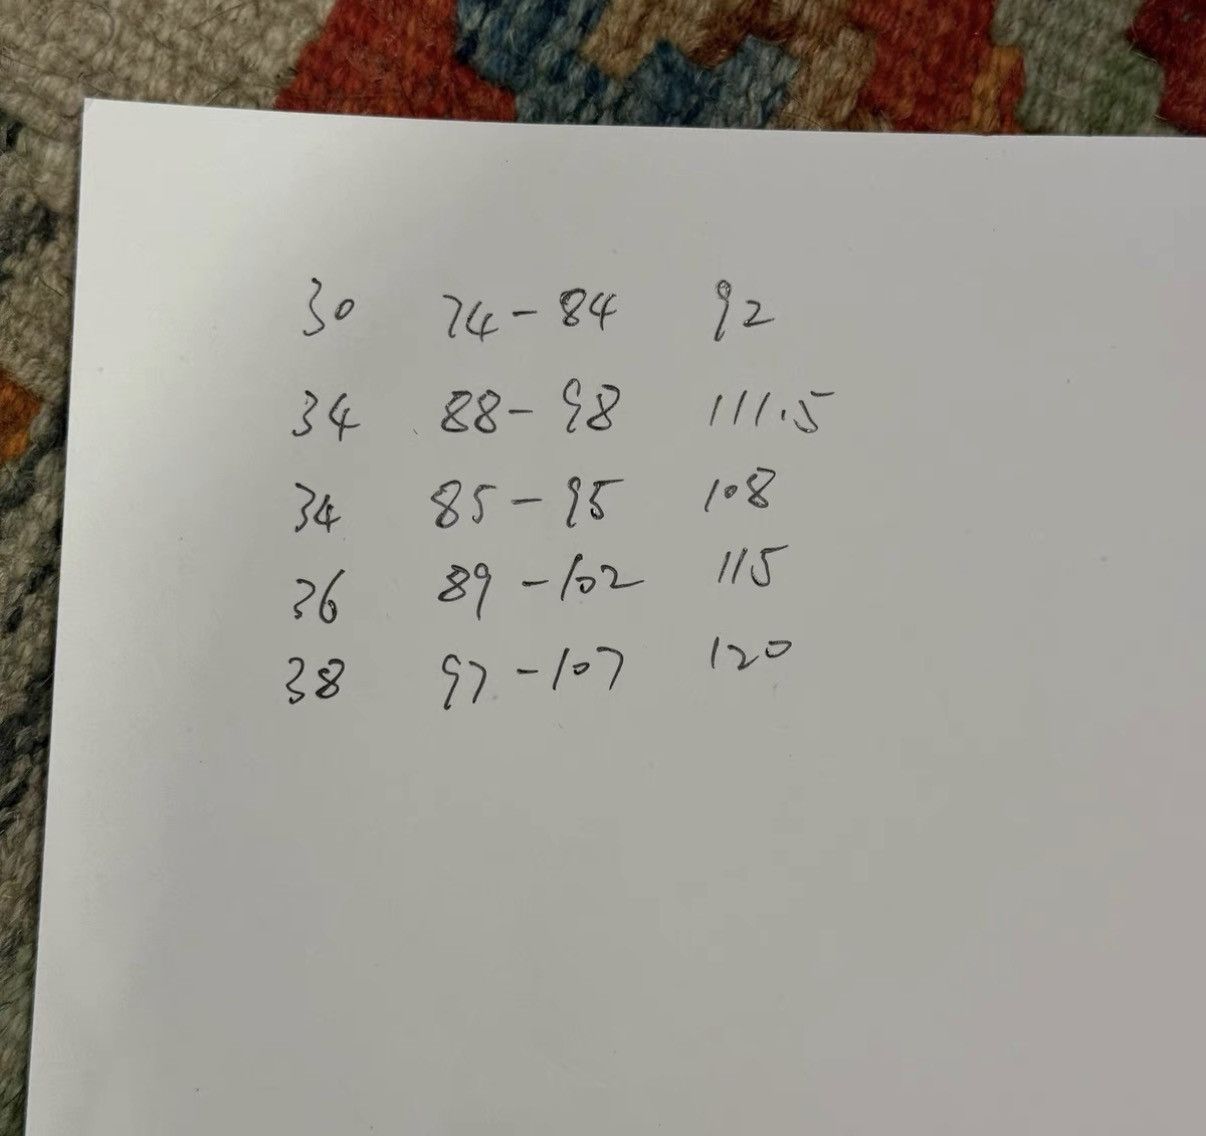 30 74-84 92
34 88-98 111.5
34 85-95 108
36 89-102 115
38 97-107 120